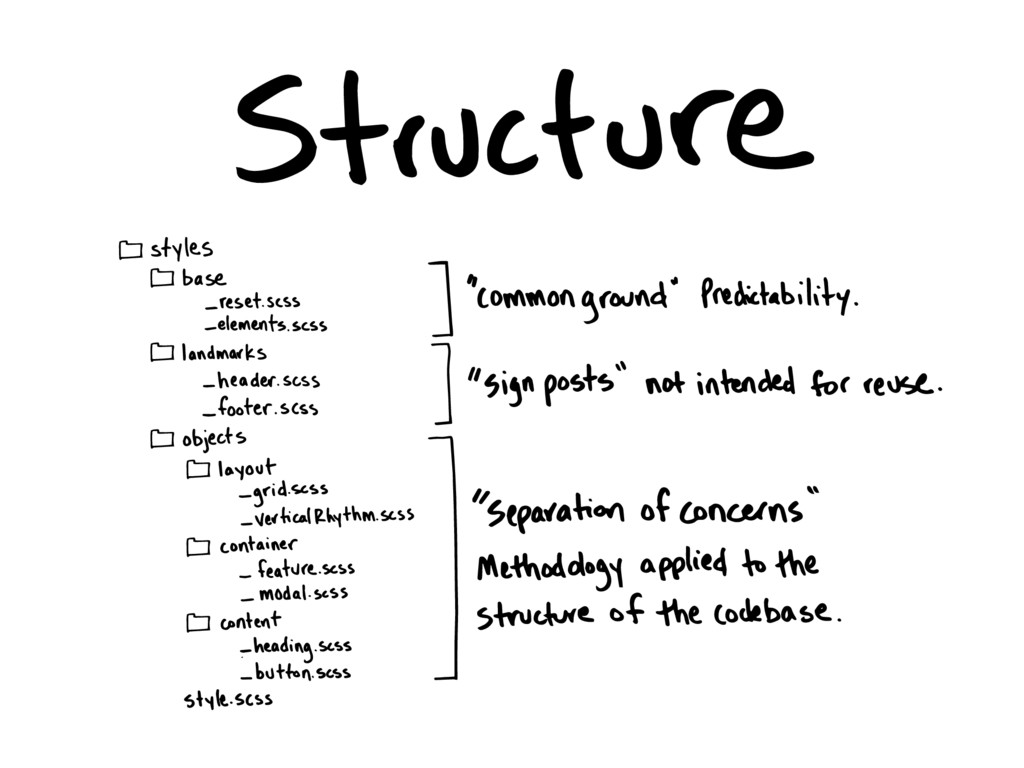 Structure
styles
base
_reset.scss
_elements.scss
"common ground" Predictability.
landmarks
_header.scss
_footer.scss
"sign posts" not intended for reuse.
objects
layout
_grid.scss
_verticalRhythm.scss
container
_feature.scss
_modal.scss
content
_heading.scss
_button.scss
"Separation of concerns"
Methodology applied to the
structure of the codebase.
style.scss